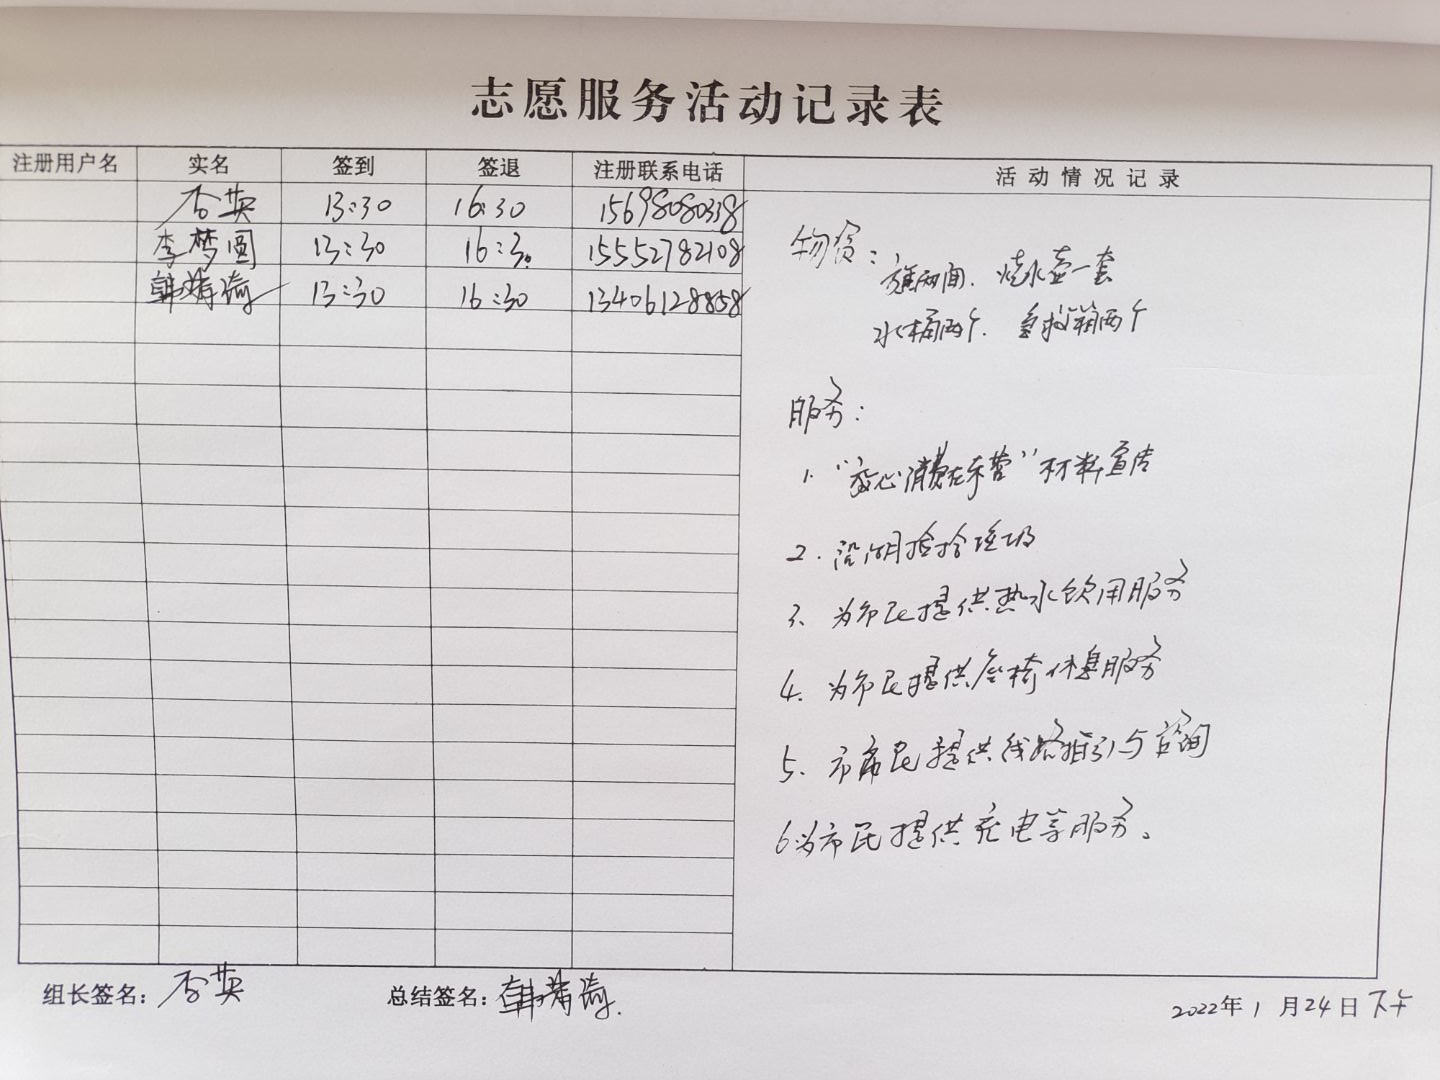 志愿服务活动记录表
注册用户名 实名 签到 签退 注册联系电话 活动情况记录
李英 13:30 16:30 15698080338
李梦圆 13:30 16:30 15552782108
韩 13:30 16:30 13406128858
物资:
旗两面. 烧水壶一套
水桶两个. 急救箱两个
服务:
1. “放心消费在东营”材料宣传
2. 沿湖捡拾垃圾
3. 为市民提供热水饮用服务
4. 为市民提供座椅休息服务
5. 市民提供线路指引与咨询
6为市民提供充电等服务。
组长签名: 李英 总结签名: 韩
2022年1月24日下午